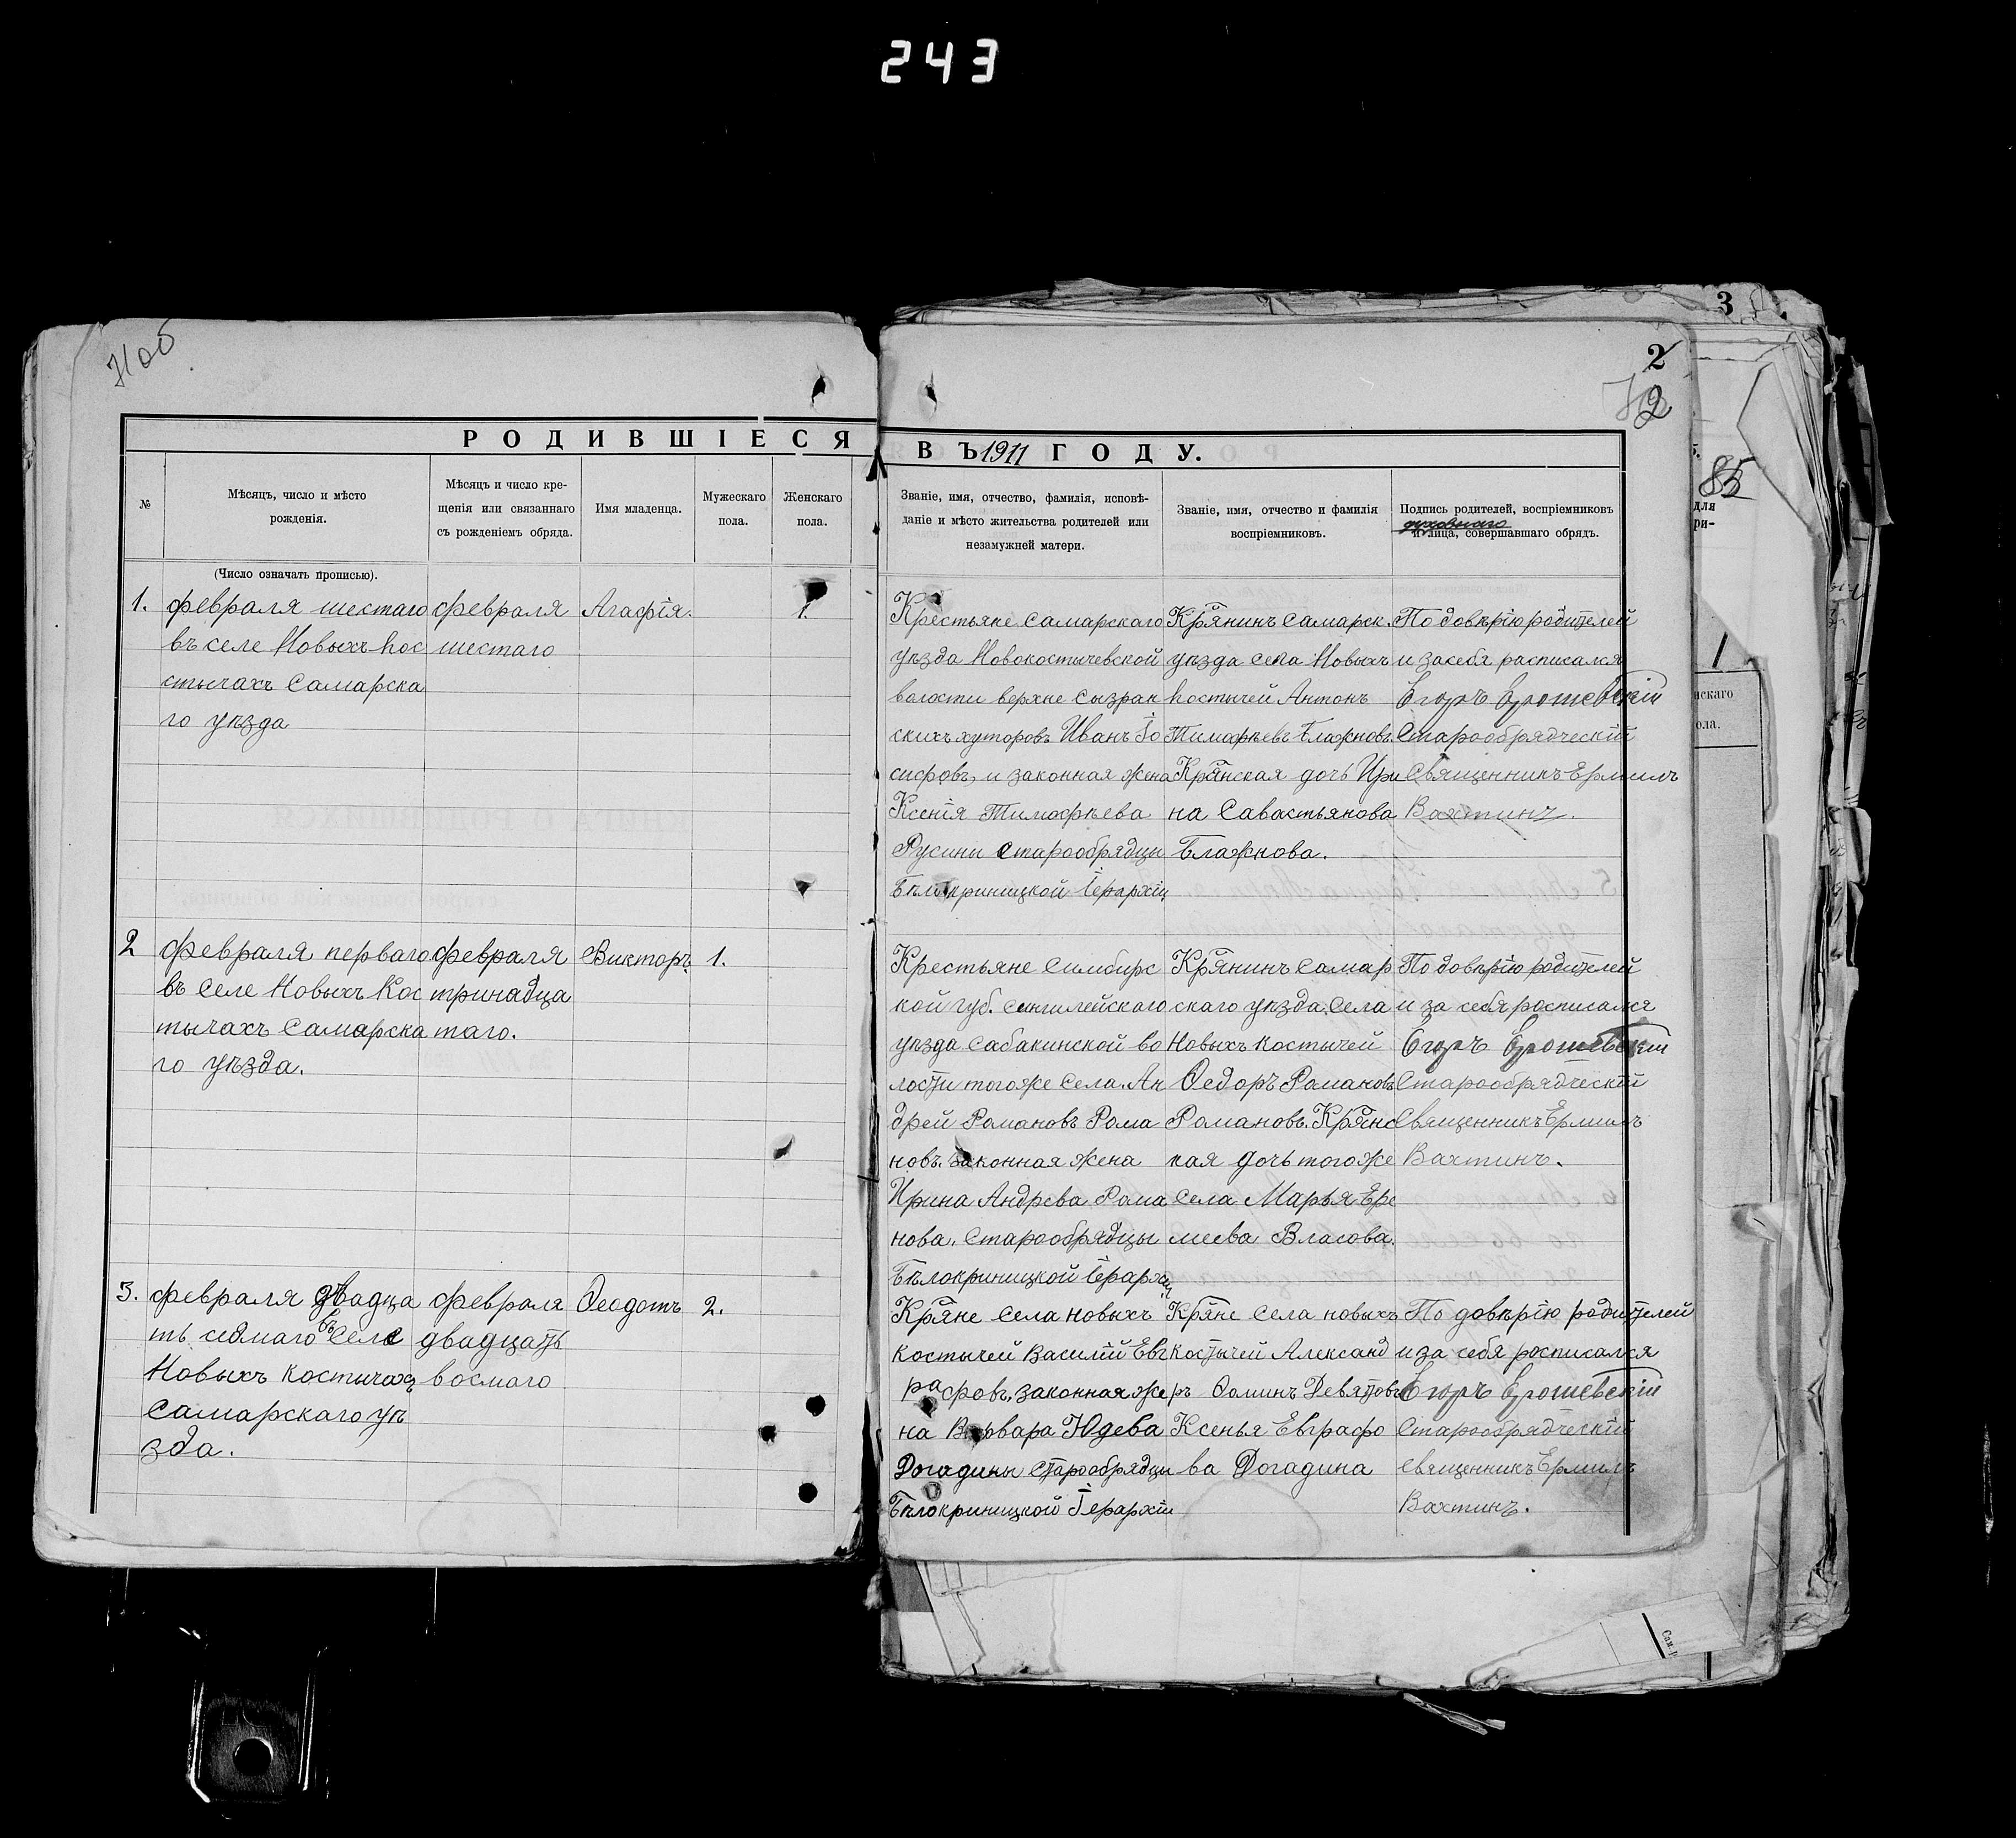 243
3
2
2
85
РОДИВШІЕСЯ ВЪ 1911 ГОДУ.
№
Мѣсяцъ, число и мѣсто
рожденія.
(Число означать прописью).
Мѣсяцъ и число кре-
щенія или связаннаго
съ рожденіемъ обряда.
Имя младенца.
Мужескаго
пола.
Женскаго
пола.
Званіе, имя, отчество, фамилія, исповѣ-
даніе и мѣсто жительства родителей или
незамужней матери.
Званіе, имя, отчество и фамилія
воспріемниковъ.
Подпись родителей, воспріемниковъ
духовнаго
и лица, совершавшаго обрядъ.
1.
февраля шестаго
въ селе Новыхъ Кос
стычахъ Самарска
го уѣзда
февраля
шестаго
Агафія.
1.
Крестьяне Самарскаго
уѣзда Новокостычевской
волости верхне Сызран
скихъ хуторовъ Иванъ Іо
сифовъ, и законная жена
Ксенія Тимофѣева
Русины старообрядцы
Бѣлокриницкой Іерархіи
Крянинъ Самарск.
уѣзда села Новыхъ
Костычей Антонъ
Тимофѣевъ Блажновъ.
Крянская дочь Ири
на Савастьянова
Блажнова.
По довѣрію родителей
и за себя расписался
Егоръ Ерошевскій
Старообрядческій
Священникъ Ермилъ
Вахтинъ.
2
февраля перваго
въ селе Новыхъ Кос
тычахъ Самарска
го уѣзда.
февраля
тринадца
таго.
Викторъ.
1.
Крестьяне Симбирс
кой губ. Сенгилейскаго
уѣзда Сабакинской во
лости тогоже села. Ан
дрей Романовъ Рома
новъ. Законная жена
Ирина Андрева Рома
нова. Старообрядцы
Бѣлокриницкой Іерархіи
Крянинъ Самар
скаго уѣзда. Села
Новыхъ Костычей
Ѳедоръ Рамановъ
Романовъ. Крянс
кая дочь тогоже
села Марья Ере
меева Власова.
По довѣрію родителей
и за себя росписался
Егоръ Ерошевскій
Старообрядческій
Священникъ Ермилъ
Вахтинъ.
3.
февраля двадца
ть седмаго въ селе
Новыхъ Костычахъ
Самарскаго уѣ
зда.
февраля
двадцать
восмаго
Ѳеодотъ
2.
Кряне села Новыхъ
Костычей Василій Евг
рафовъ, законная же
на Варвара Юдева
Догадины Старообрядцы
Бѣлокриницкой Іерархіи
Кряне села новыхъ
Костычей Александ
ръ Ѳоминъ Девятовъ
Ксенья Евграфо
ва Догадина
По довѣрію родителей
и за себя росписался
Егоръ Ерошевскій
Старообрядческій
священникъ Ермилъ
Вахтинъ.